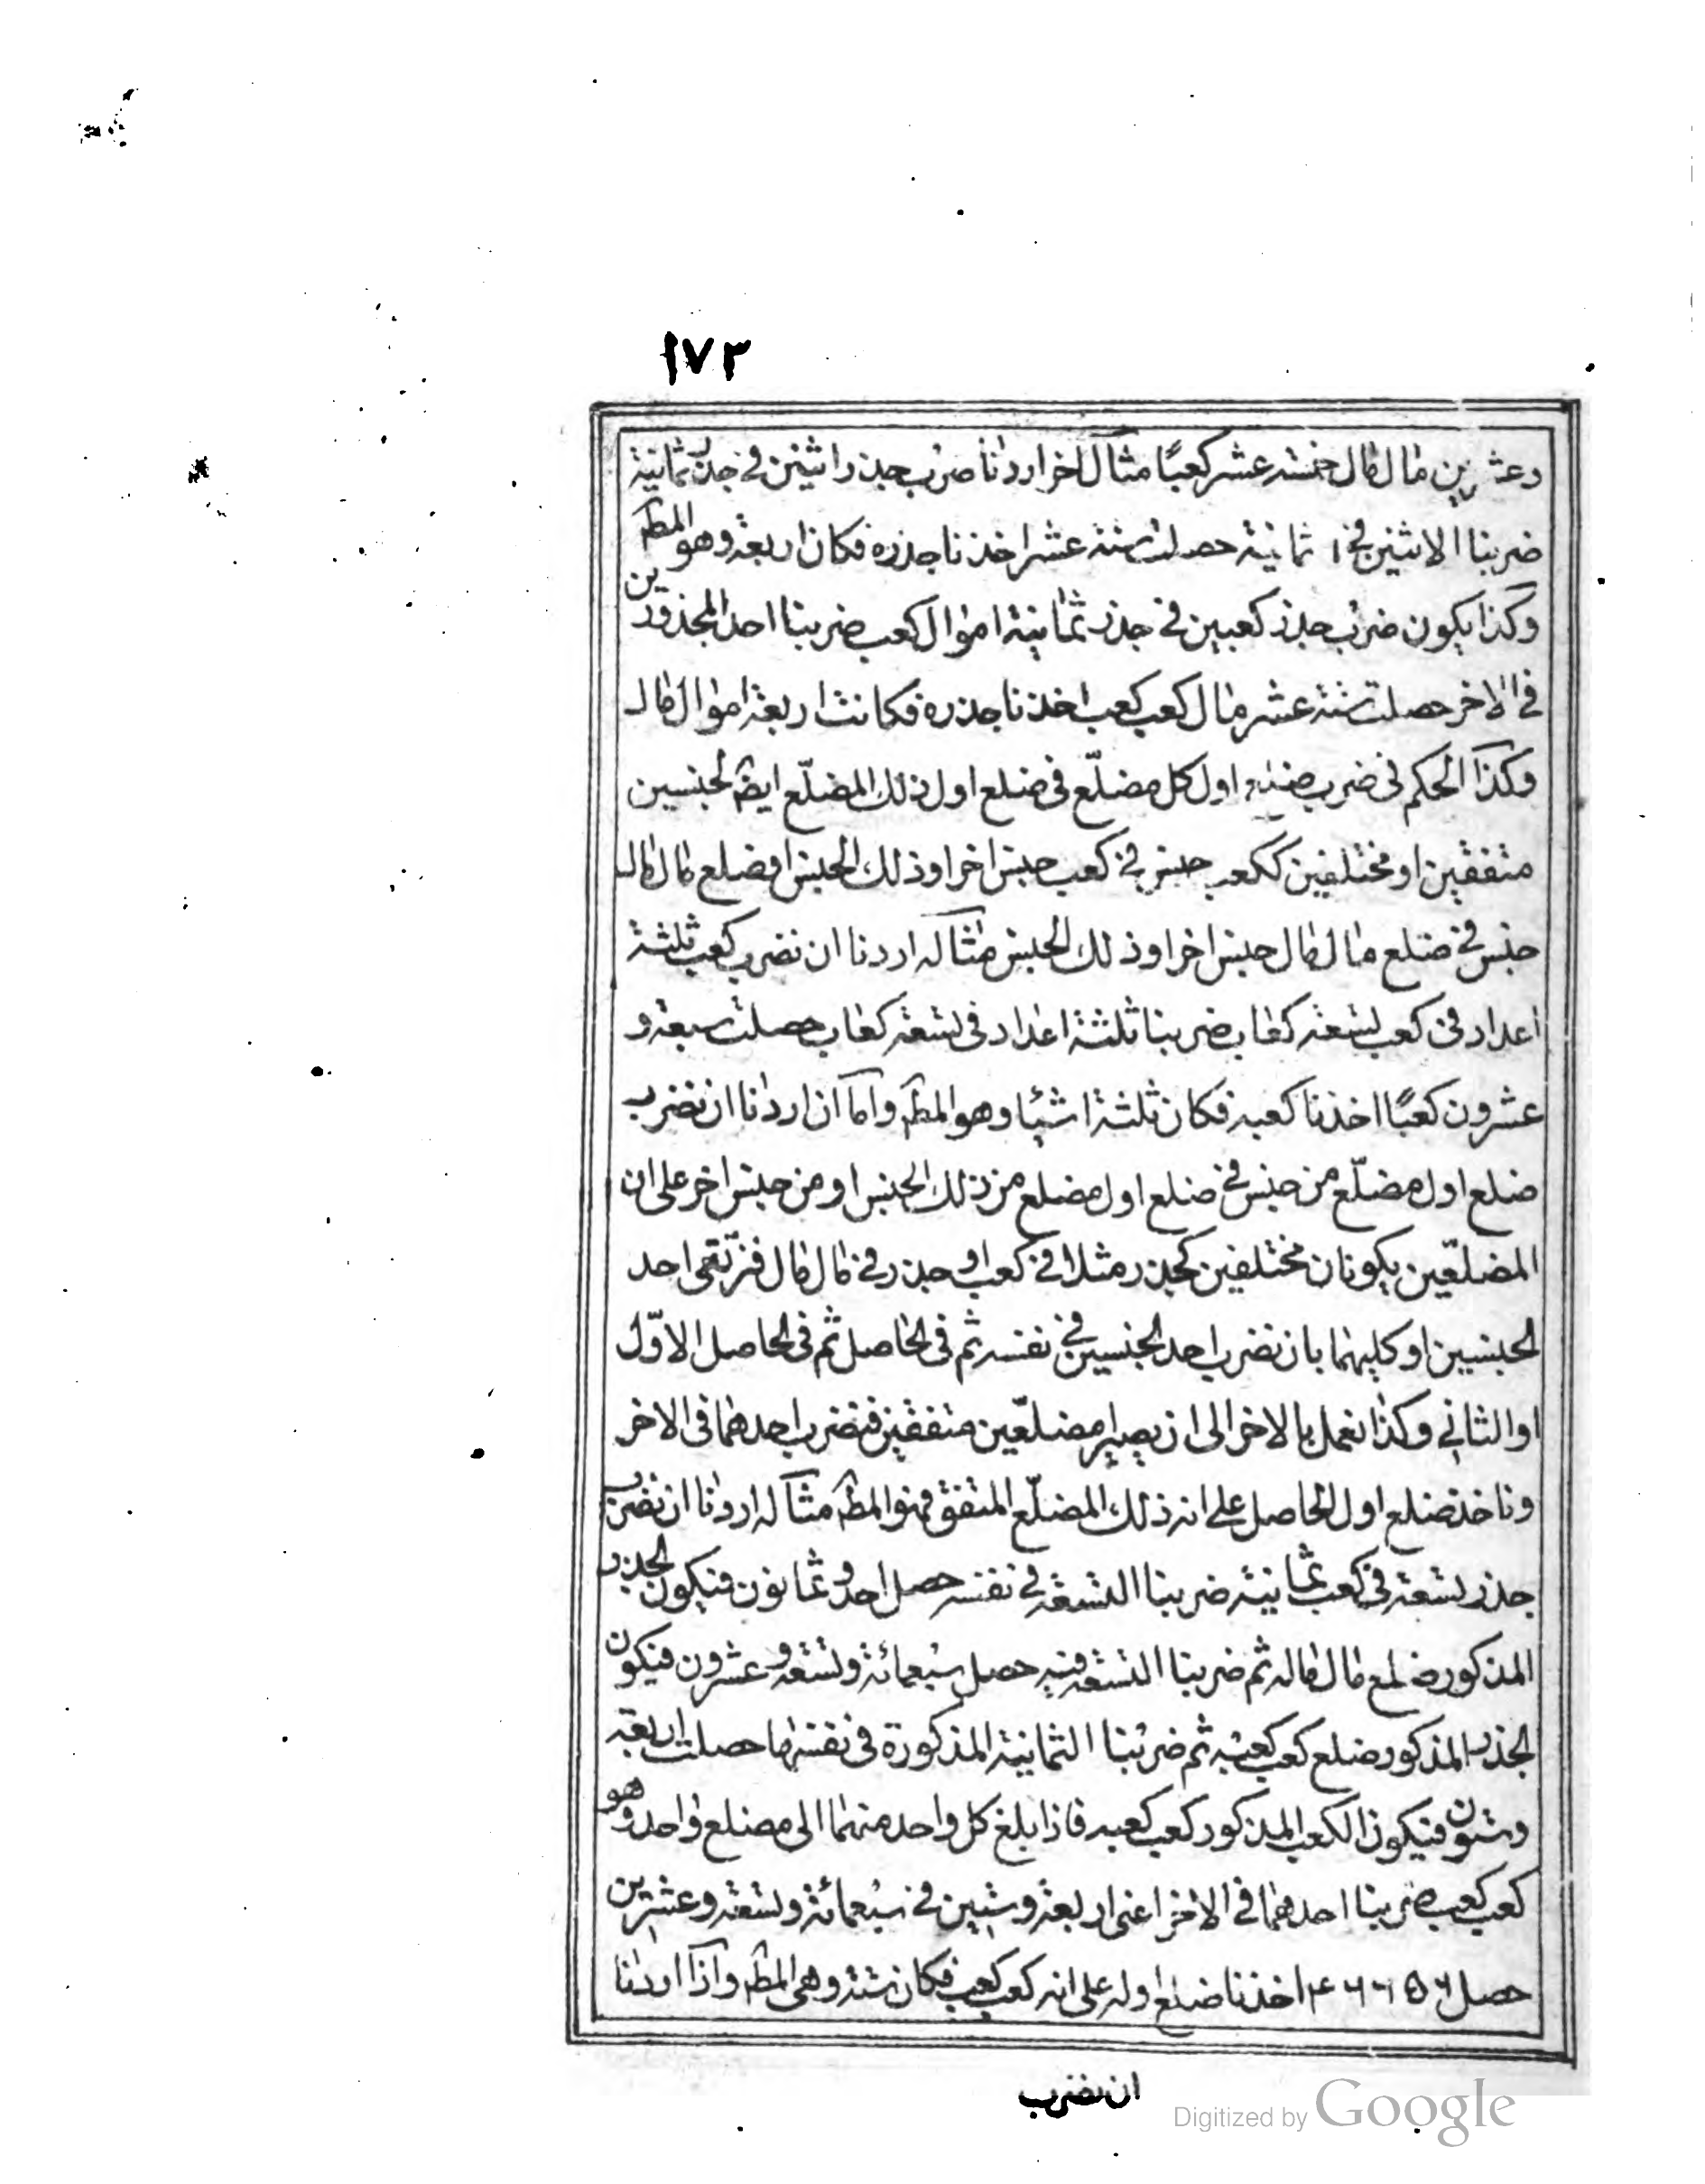 ١٧٣
وعشرين مال مال خمسة عشر كعبًا مثال اخر اردنا ضرب جذر اثنين في جذر ثمانية
ضربنا الاثنين في ثمانية حصلت ستة عشر اخذنا جذره فكان اربعة وهو المطـ
وكذا يكون ضرب جذر كعبين في جذر ثمانية اموال كعب ضربنا احد المجذورين
في الاخر حصلت ستة عشر مال كعب كعب اخذنا جذره فكانت اربعة اموال مال
وكذا الحكم في ضرب ضلع اول كل مضلّع في ضلع اول ذلك المضلّع ايضـ لجنسين
متفقين او مختلفين ككعب جنس في كعب جنس اخر او ذلك الجنس او ضلع مال مال
جنس في ضلع مال مال جنس اخر او ذلك الجنس مثاله اردنا ان نضرب كعب ثلثة
اعداد في كعب تسعة كعاب ضربنا ثلثة اعداد في تسعة كعاب حصلت سبعة و
عشرون كعبًا اخذنا كعبه فكان ثلثة اشيا وهو المطـ واما ان اردنا ان نضرب
ضلع اول مضلّع من جنس في ضلع اول مضلع من ذلك الجنس او من جنس اخر على ان
المضلّعين يكونان مختلفين كجذر مثلا في كعب او جذر في مال مال فنرتقى احد
الجنسين او كليهما بان نضرب احد الجنسين في نفسه ثم في الحاصل ثم في الحاصل الاوّل
او الثاني وكذا نعمل بالاخر الى ان يصير مضلّعين متفقين فنضرب احدهما في الاخر
وناخذ ضلع اول الحاصل على انه ذلك المضلّع المتفق فهو المطـ مثاله اردنا ان نضرب
جذر تسعة في كعب ثمانية ضربنا التسعة في نفسه حصل احد وثمانون فيكون الجذر
المذكور ضلع مال ماله ثم ضربنا التسعة فيه حصل سبعمائة وتسعة وعشرون فيكون
الجذر المذكور ضلع كعب كعبه ثم ضربنا الثمانية المذكورة في نفسها حصلت اربعة
وستون فيكون الكعب المذكور كعب كعبه فاذا بلغ كل واحد منهما الى مضلع واحد وهو
كعب كعب ضربنا احدهما في الاخر اعنى اربعة وستين في سبعمائة وتسعة وعشرين
حصل ٤٦٦٥٦ اخذنا ضلع اوله على انه كعب كعب فكان ستة وهى المطـ واذا اردنا
ان نضرب
Digitized by Google